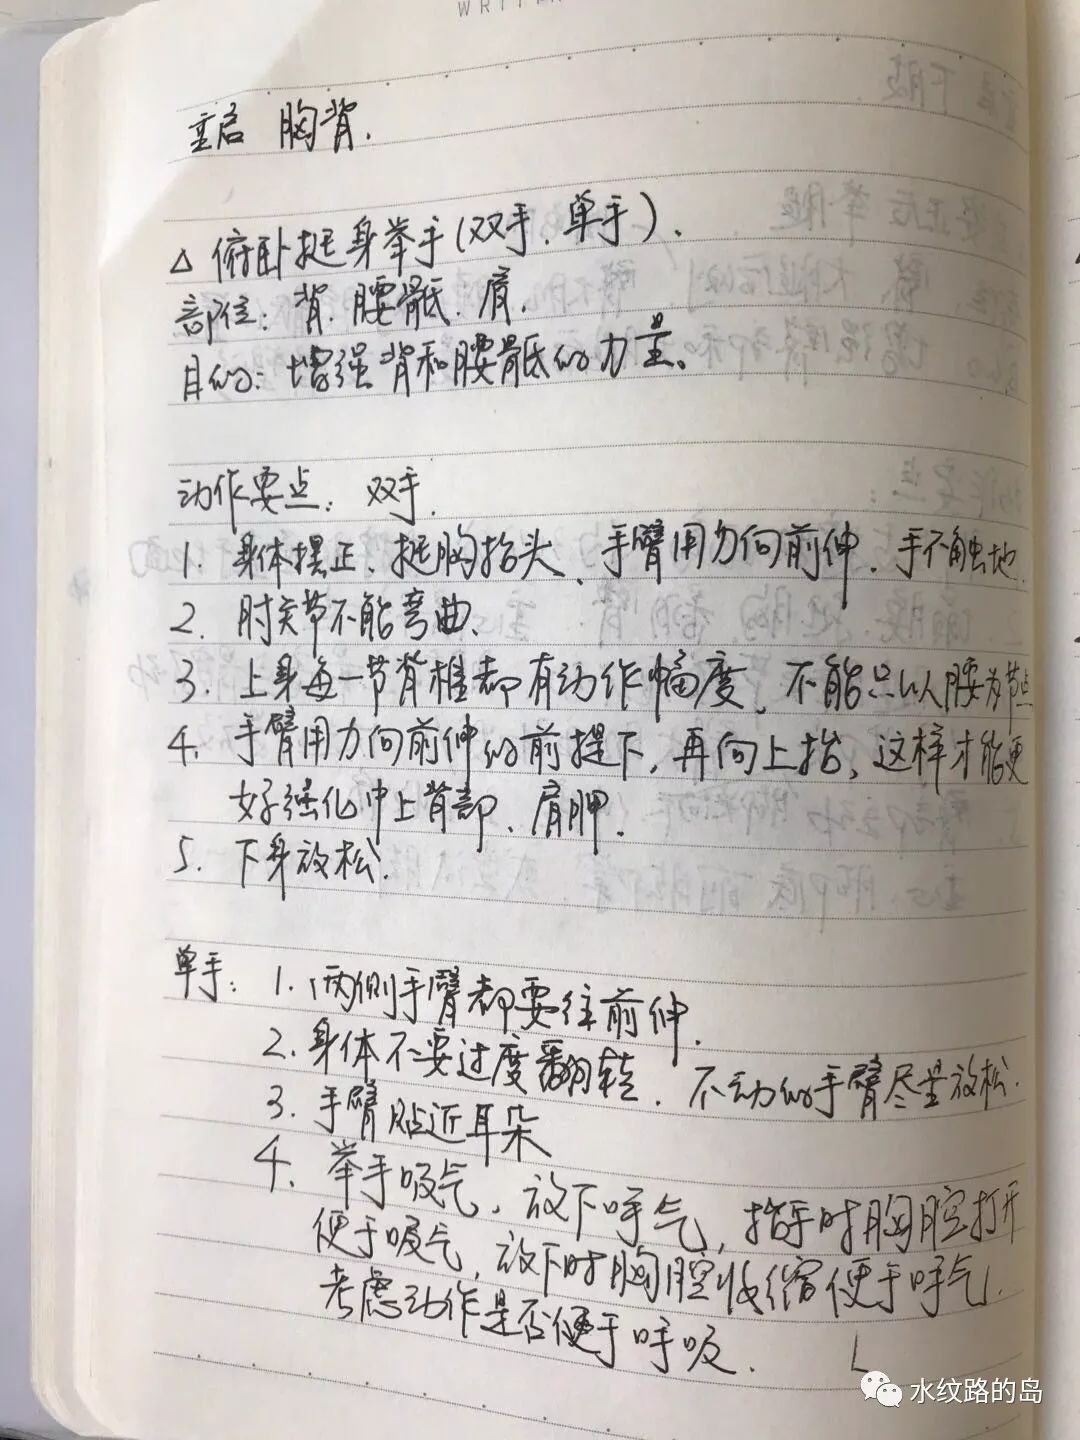 重启 胸背.
△ 俯卧挺身举手(双手、单手).
部位: 背.腰骶.肩.
目的: 增强背和腰骶的力量。
动作要点: 双手.
1. 身体摆正、挺胸抬头、手臂用力向前伸.手不触地.
2. 肘关节不能弯曲.
3. 上身每一节脊椎都有动作幅度、不能只以腰为节点
4. 手臂用力向前伸的前提下,再向上抬,这样才能更
好强化中上背部、肩胛.
5. 下身放松.
单手: 1. 两侧手臂都要往前伸.
2. 身体不要过度翻转.不动的手臂尽量放松.
3. 手臂贴近耳朵
4. 举手吸气,放下呼气,抬手时胸腔打开
便于吸气,放下时胸腔收缩便于呼气.
考虑动作是否便于呼吸.
水纹路的岛